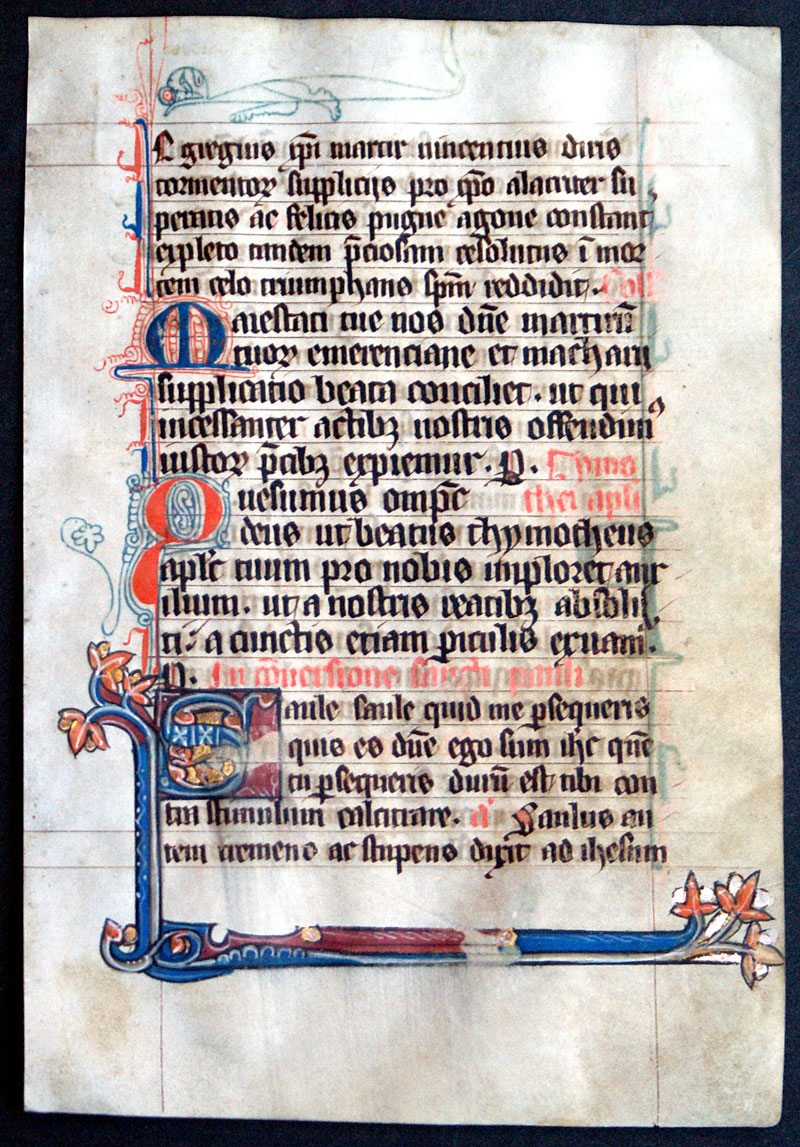 Egregius xpi martir vincentius diris
tormentoꝝ supplicijs pro xpo alacriter su
peratis ac felicis pugne agone constant
expleto tandem p̄ciosam resolutus ī mor
tem celo triumphans sp̄m reddidit. Coll
Maiestati tue nos dn̄e martirū
tuoꝝ emerenciane et macharij
supplicatio beata conciliet. ut qui
incessanter actibꝫ nostris offendimꝰ
iustoꝝ p̄cibꝫ expiemur. P. Tymo
Quesumus omp̄c thei apli
deus ut beatus thymotheus
apl̄c tuum pro nobis imploret aux
ilium. ut a nostris reatibꝫ absolu
ti: a cunctis etiam ꝑiculis exuam̄.
P. In ꝯuersione sancti pauli
Saule saule quid me ꝑsequeris
quis es dn̄e ego sum ih̄c quē
tu ꝑsequeris durū est tibi con
tra stimulum calcitrare. a Saulus au
tem tremens ac stupens dixit ad ihesum